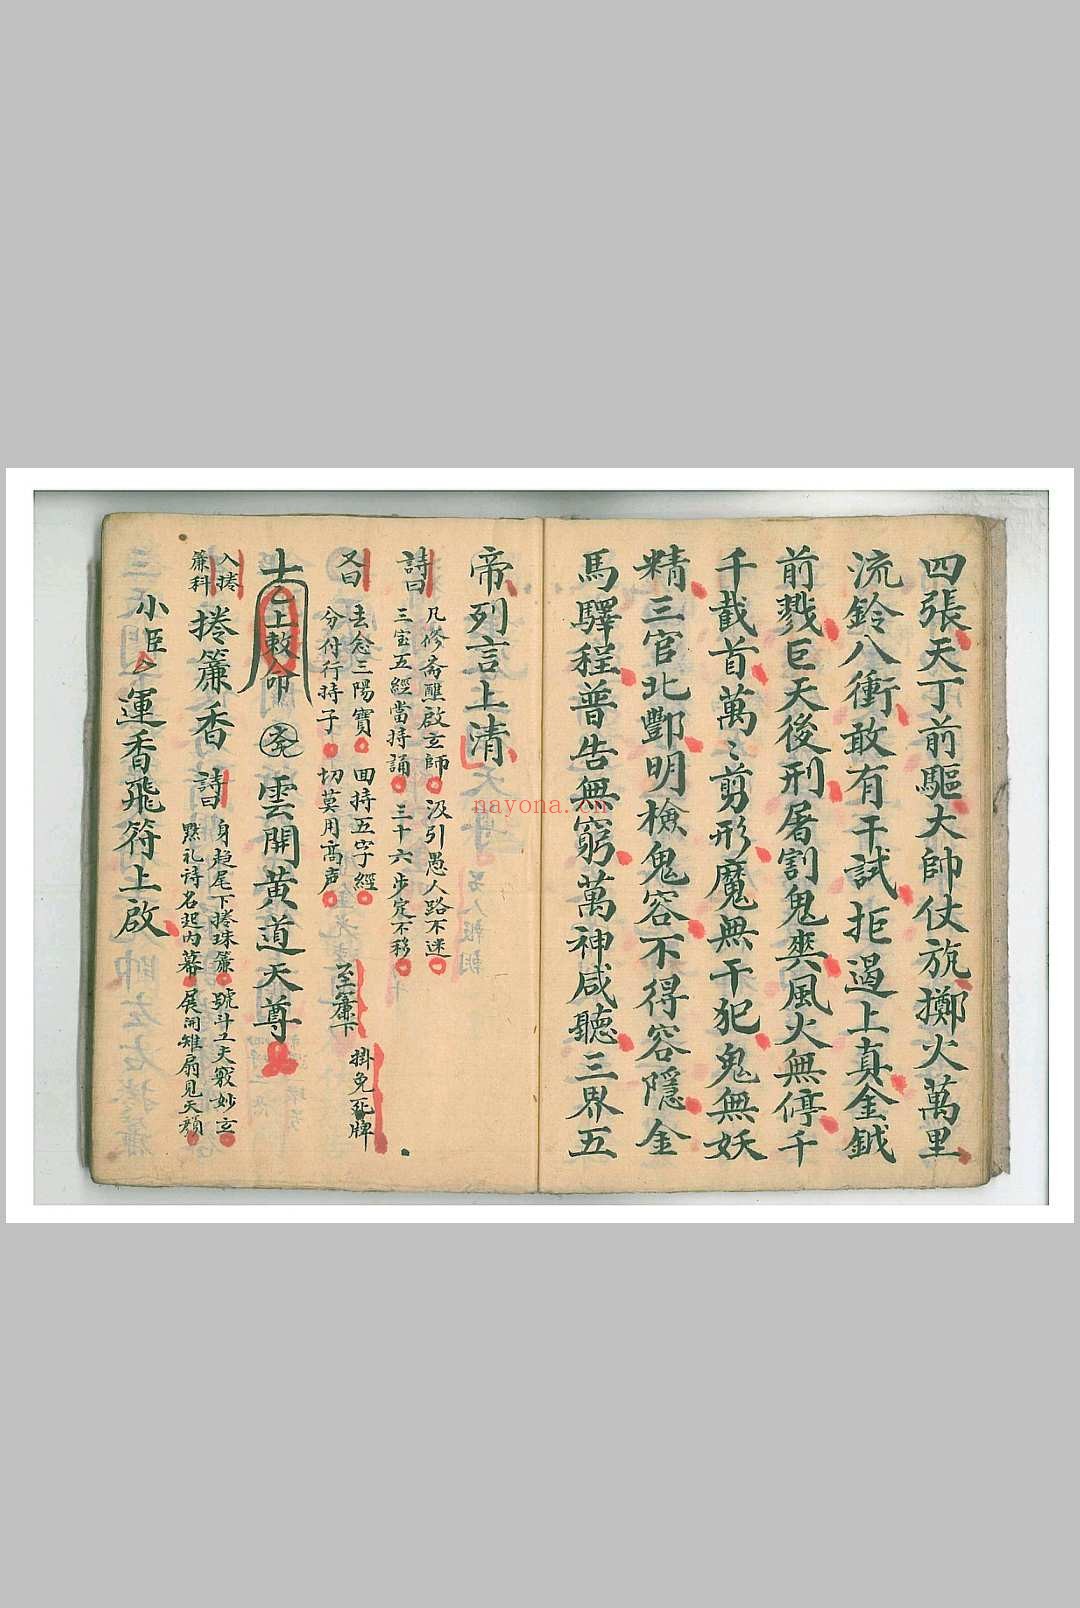 四張天丁前驅大帥仗旄擲火萬里
流鈴八衝敢有干試拒遏上真金鉞
前戮巨天後刑屠割鬼爽風火無停千
千截首萬〻剪形魔無干犯鬼無妖
精三官北酆明檢鬼容不得容隱金
馬驛程普告無窮萬神咸聽三界五
帝列言上清
詩曰
凡修斋醮啟玄師 汲引愚人路不迷
三宝五經當持誦 三十六步定不移
又曰
去念三陽寶 回持五字經
分付行持子 切莫用高声
至簾下 掛免死牌
上敕命 雲開黄道天尊
入捲簾科 捲簾香 詩曰
身趋尾下捲珠簾 號斗工夫竅妙玄
黙礼诗名起内幕 展開雉扇見天顏
小臣厶運香飛符上啟
nayona.cn